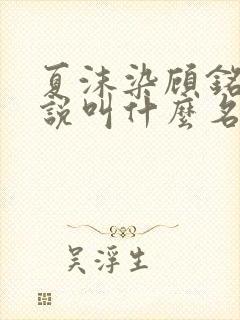 夏沫染顾銘
說叫什麼名
吴浮生